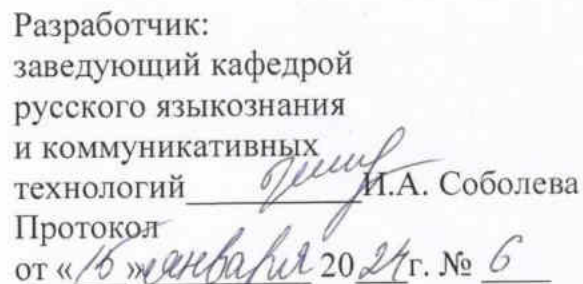 Разработчик:
заведующий кафедрой
русского языкознания
и коммуникативных
технологий И.А. Соболева
Протокол
от «15» января 2024г. № 6